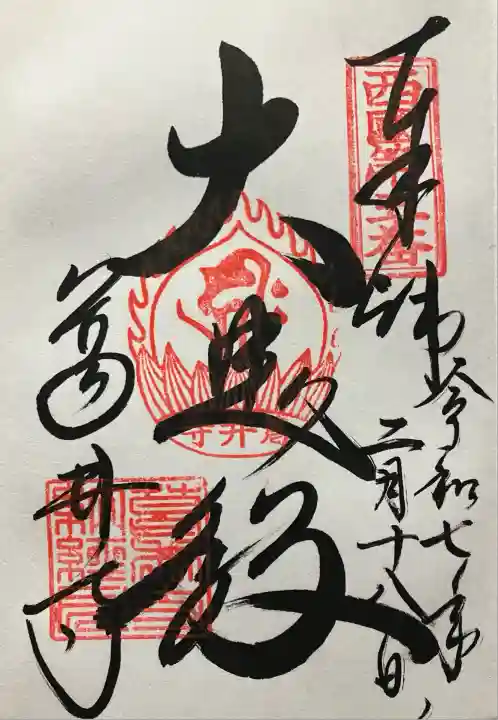 西国第五番
奉拝 令和七年
二月十八日
大悲殿
葛井寺
葛井寺